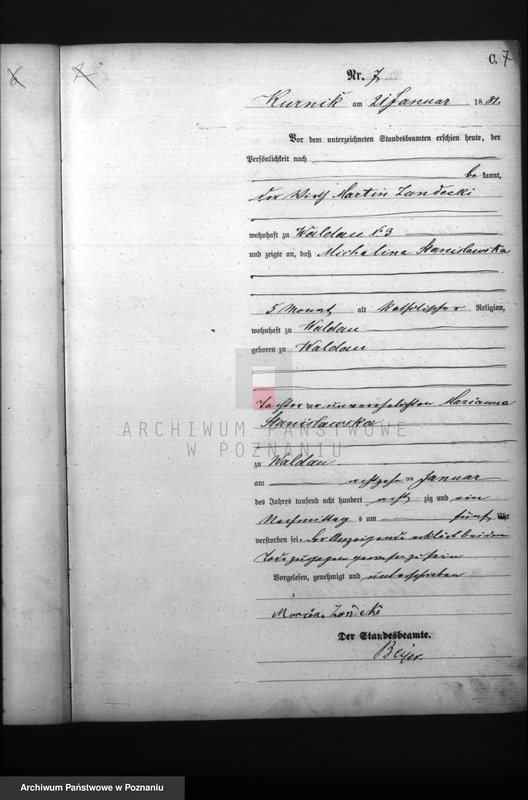 C. 7
Nr. 7
Kurnik am 21 Januar 1881.
Vor dem unterzeichneten Standesbeamten erschien heute, der
Persönlichkeit nach
bekannt,
der Wirth Martin Zandecki
wohnhaft zu Waldau № 3
und zeigte an, daß Michalina Stanislawska
5 Monat alt katholischer Religion,
wohnhaft zu Waldau
geboren zu Waldau
Tochter der unverehelichten Marianna
Stanislawska
ARCHIWUM PAŃSTWOWE
W POZNANIU
zu Waldau
am achtzehnten Januar
des Jahres tausend acht hundert achtzig und ein
Nachmittags um fünf Uhr
verstorben sei. Der Anzeigende erklärt bei dem
Tode zugegen gewesen zu sein
Vorgelesen, genehmigt und unterschrieben
Zandecki
Der Standesbeamte.
Beyer.
Archiwum Państwowe w Poznaniu
Archiwum Państwowe w Poznaniu